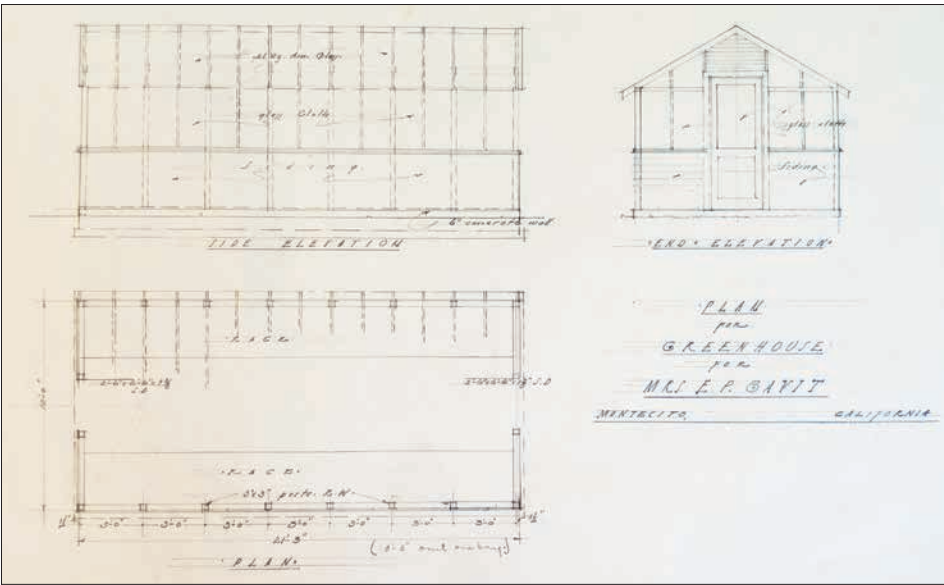 glass cloth
Siding
6" concrete wall
SIDE ELEVATION
glass cloth
Siding
·END· ELEVATION·
·RACK·
S.D
S.D
10'-0"
·RACK·
3"x3" posts R.W
3'-0" 3'-0" 3'-0" 3'-0" 3'-0" 3'-0" 3'-0"
21'-3"
·PLAN·
·PLAN
FOR
GREENHOUSE
FOR
MRS E.P. GAVIT
MONTECITO, CALIFORNIA